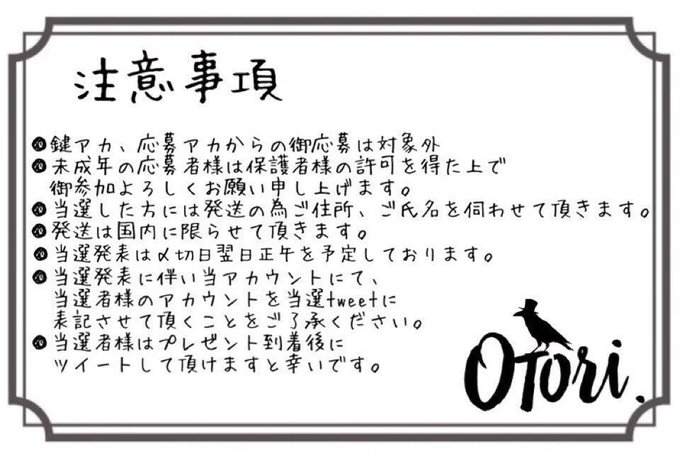 注意事項
●鍵アカ、応募アカからの御応募は対象外
●未成年の応募者様は保護者様の許可を得た上で
御参加よろしくお願い申し上げます。
●当選した方には発送の為ご住所、ご氏名を伺わせて頂きます。
●発送は国内に限らせて頂きます。
●当選発表は〆切日翌日正午を予定しております。
●当選発表に伴い当アカウントにて、
当選者様のアカウントを当選tweetに
表記させて頂くことをご了承ください。
●当選者様はプレゼント到着後に
ツイートして頂けますと幸いです。
OTori.